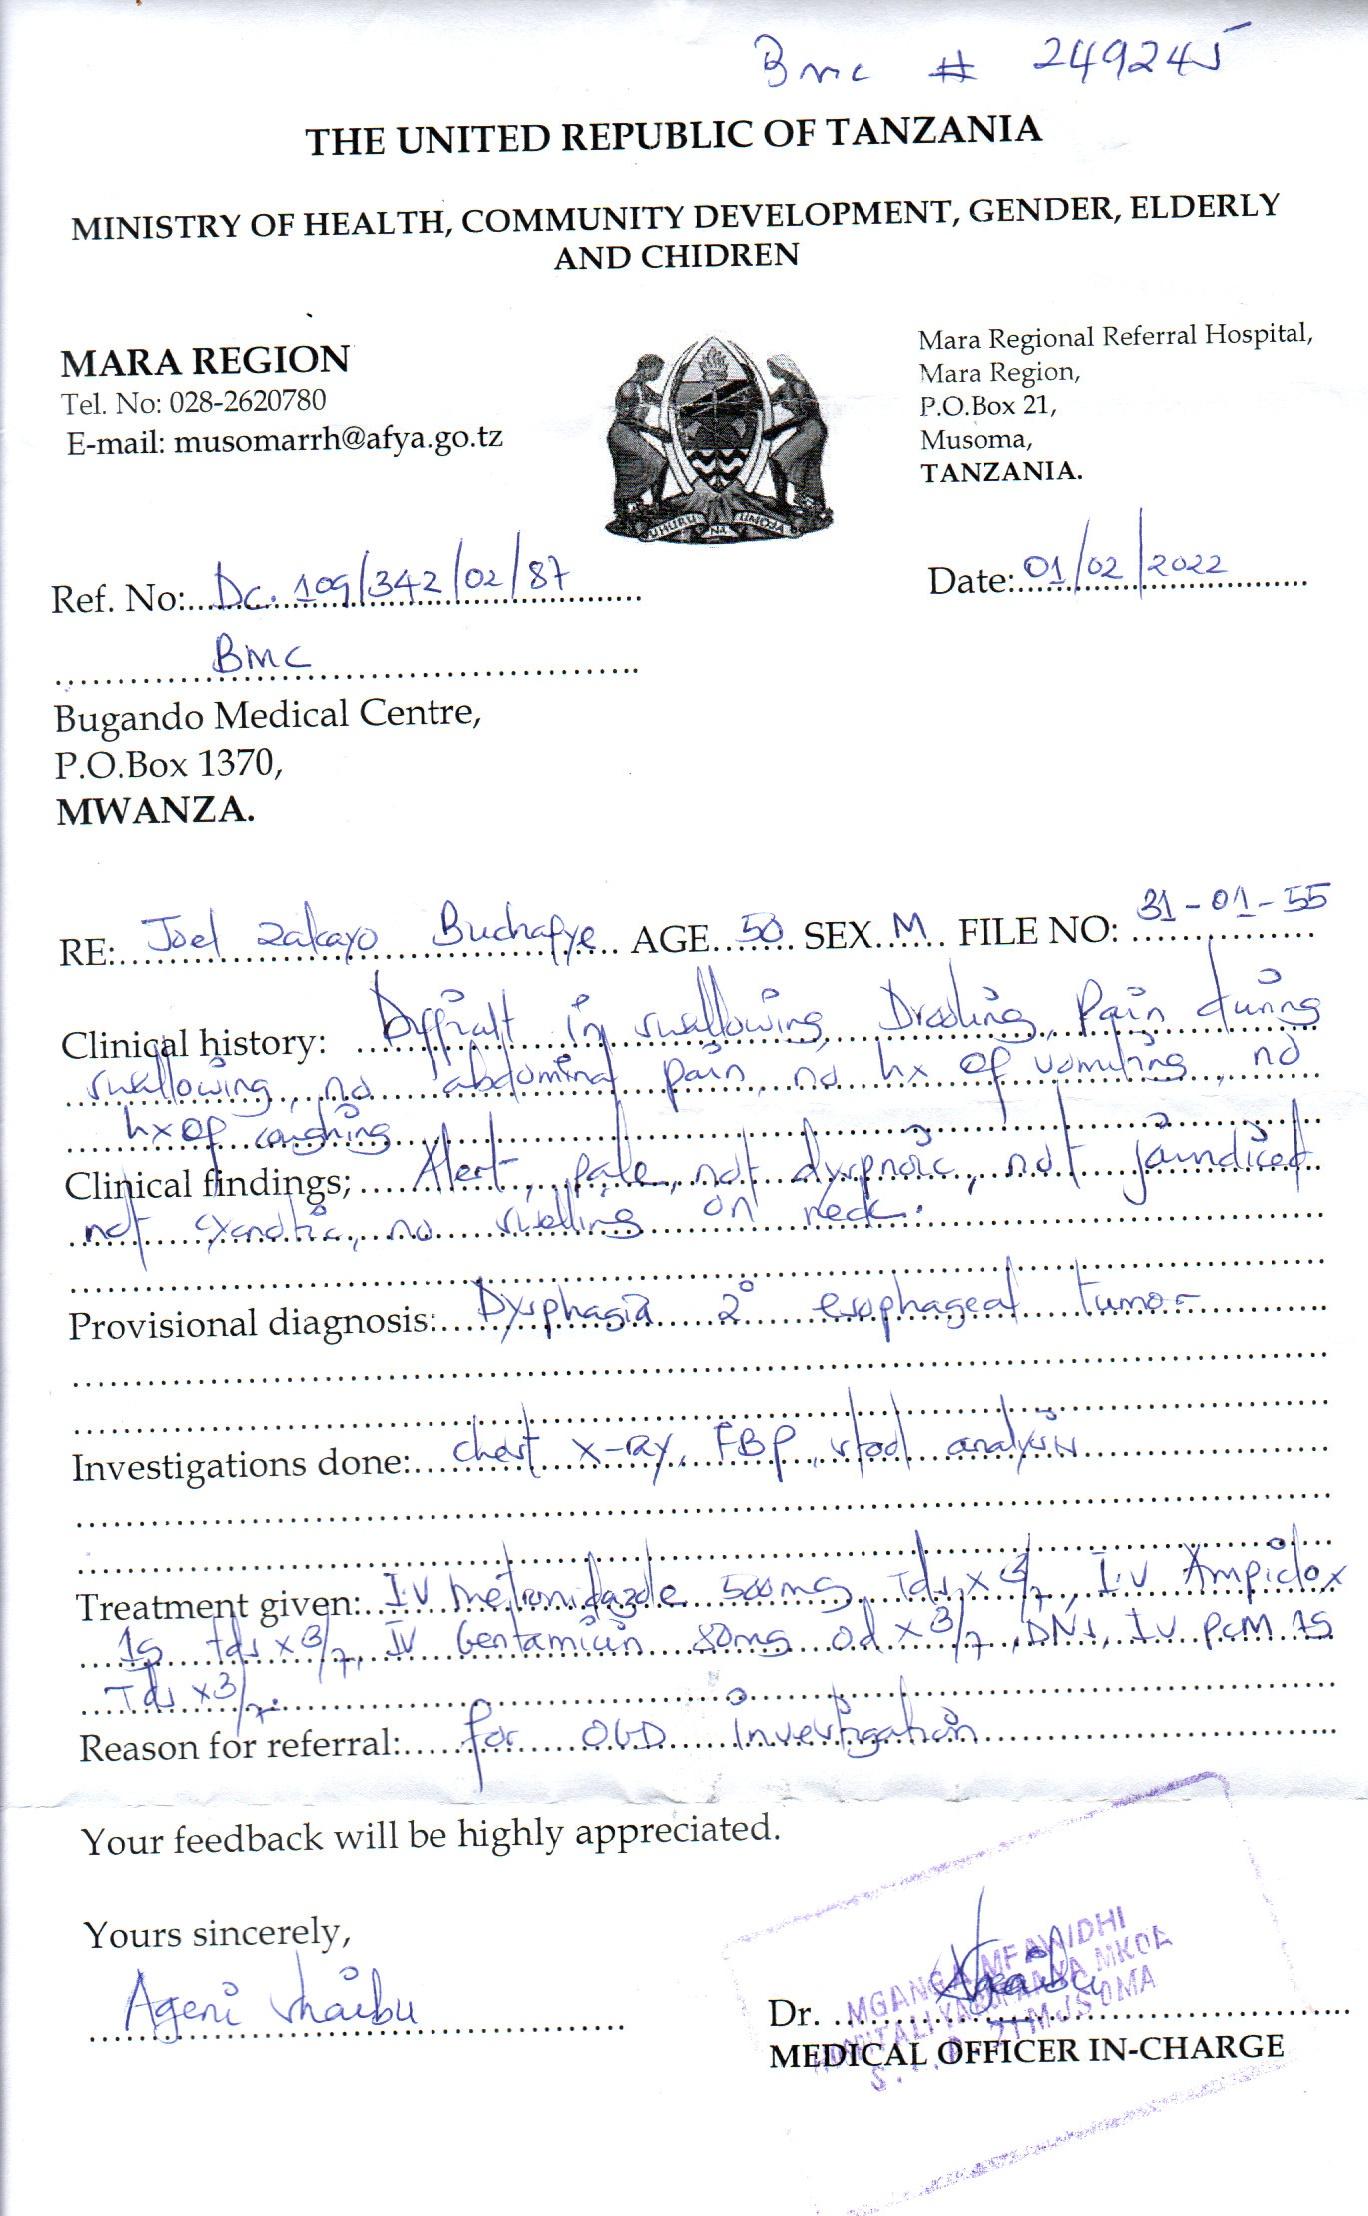 Bmc # 249245
THE UNITED REPUBLIC OF TANZANIA
MINISTRY OF HEALTH, COMMUNITY DEVELOPMENT, GENDER, ELDERLY
AND CHIDREN
MARA REGION
Tel. No: 028-2620780
E-mail: musomarrh@afya.go.tz
UHURU NA UMOJA
Mara Regional Referral Hospital,
Mara Region,
P.O.Box 21,
Musoma,
TANZANIA.
Ref. No: Dc. 109/342/02/87
Date: 01/02/2022
BMC
Bugando Medical Centre,
P.O.Box 1370,
MWANZA.
RE: Joel Zakayo Buchafye AGE 50 SEX M FILE NO: 31-01-55
Clinical history: in swallowing, Drooling, Pain during
swallowing, no abdominal pain, no hx of vomiting, no
hx of coughing
Clinical findings; Alert, pale, not dyspnoic, not jaundiced
not cyanotic, no swelling on neck.
Provisional diagnosis: Dysphagia 2° esophageal tumor
Investigations done: chest x-ray, FBP, stool analysis
Treatment given: I.V metronidazole 500mg Tds x 3/7, I.V Ampiclox
1g tds x 3/7, IV Gentamicin 80mg od x 3/7, DNS, I.V pcm 1g
Tds x3/7.
Reason for referral: for OGD investigation
Your feedback will be highly appreciated.
Yours sincerely,
Ageni shaibu
MGANGA MFAWIDHI
Dr.
MEDICAL OFFICER IN-CHARGE